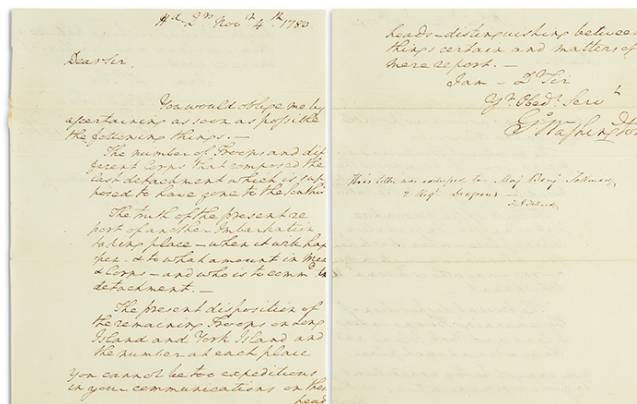 Hd. Qrs Novr 4th. 1780
Dear Sir,
You would oblige me by
ascertaining as soon as possible
the following things. —
The number of Troops and dif
ferent Corps that composed the
last detachment which is sup
posed to have gone to the Southw
The truth of the present re
port of another Imbarkation
taking place — when it will hap
pen — & to what amount in Men
& Corps — and who is to commd. the
detachment. —
The present disposition of
the remaining Troops on Long
Island and York Island and
the number at each place
You cannot be too expeditious
in your communications on these
head
heads — distinguishing between
things certain and matters of
mere report. —
I am — Dr Sir
Yr. Obedt. Servt
Go Washington
This letter was addressed to Maj. Benj. Tallmadge,
2 Regt. Dragoons